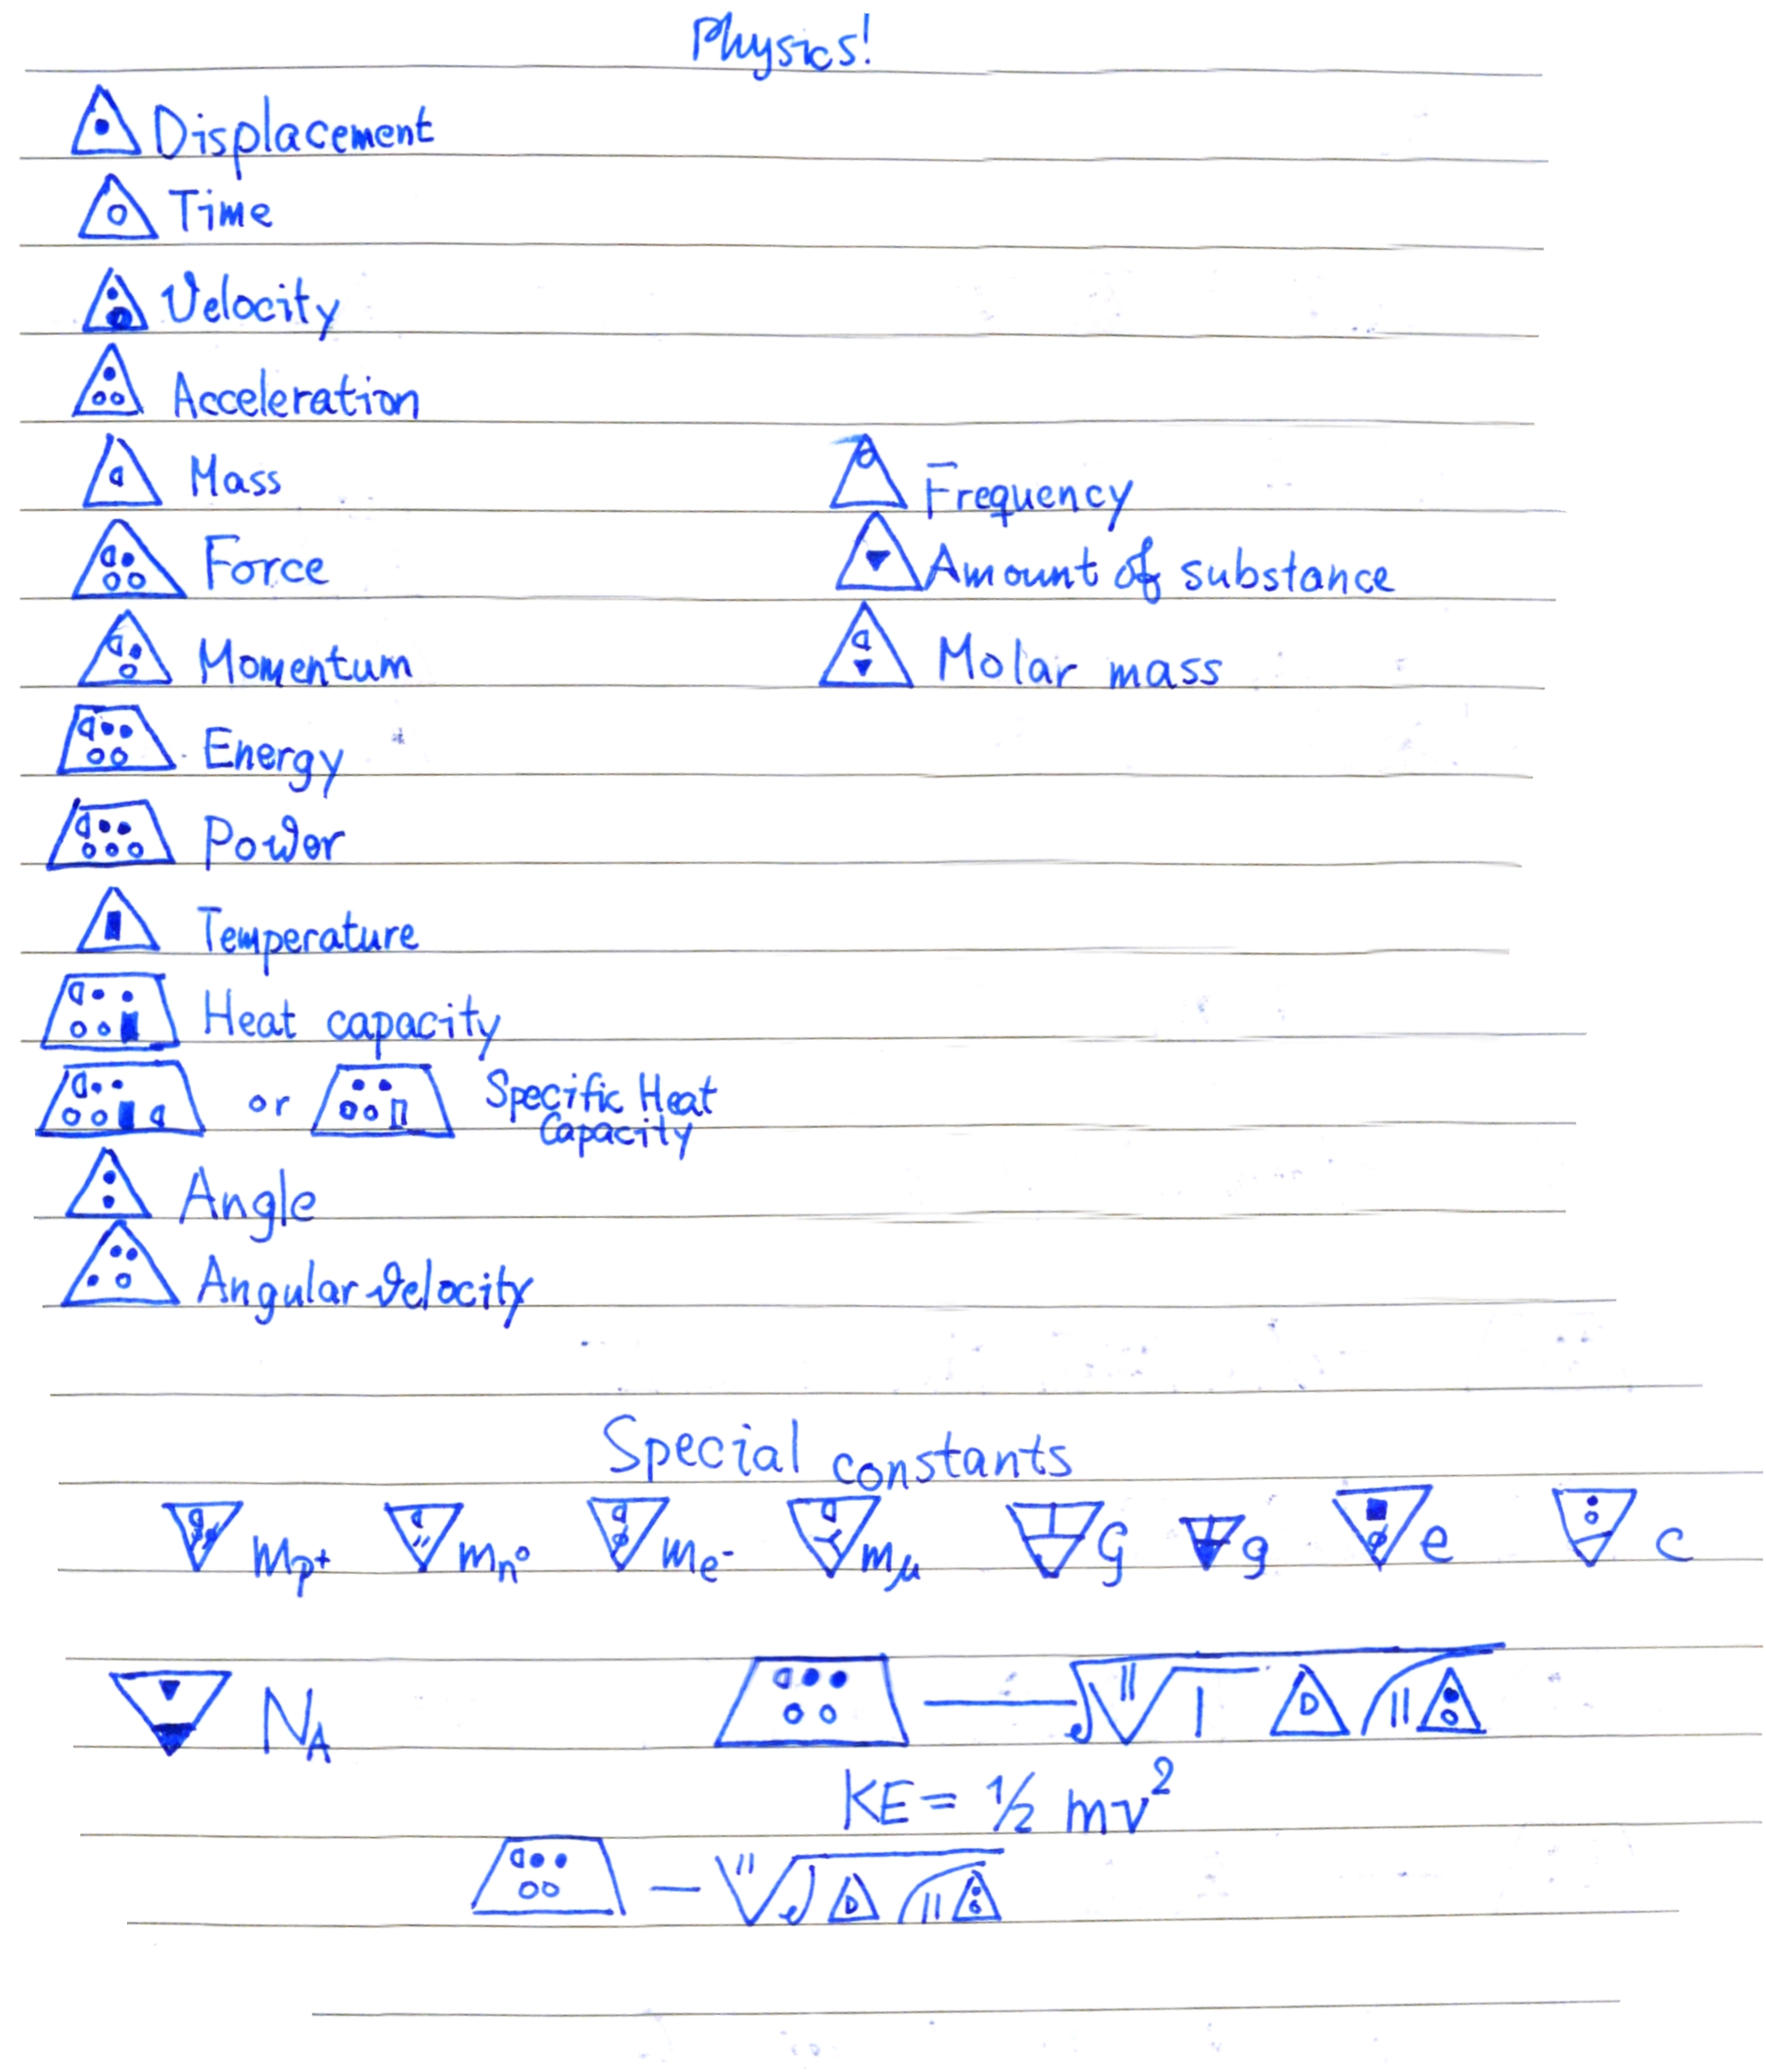 Physics!
Displacement
Time
Velocity
Acceleration
Mass
Frequency
Force
Amount of substance
Momentum
Molar mass
Energy
Power
Temperature
Heat capacity
or Specific Heat
Capacity
Angle
Angular velocity
Special constants
mp+ mn° me- mμ G g e c
NA
KE = 1/2 mv²